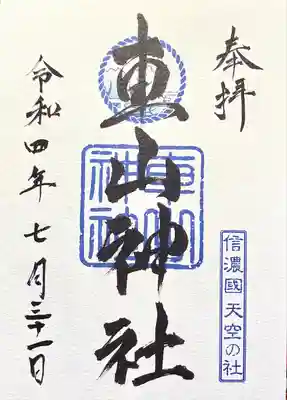 奉拝
信濃國 天空の社
東山神社
東山神社
令和四年七月三十一日